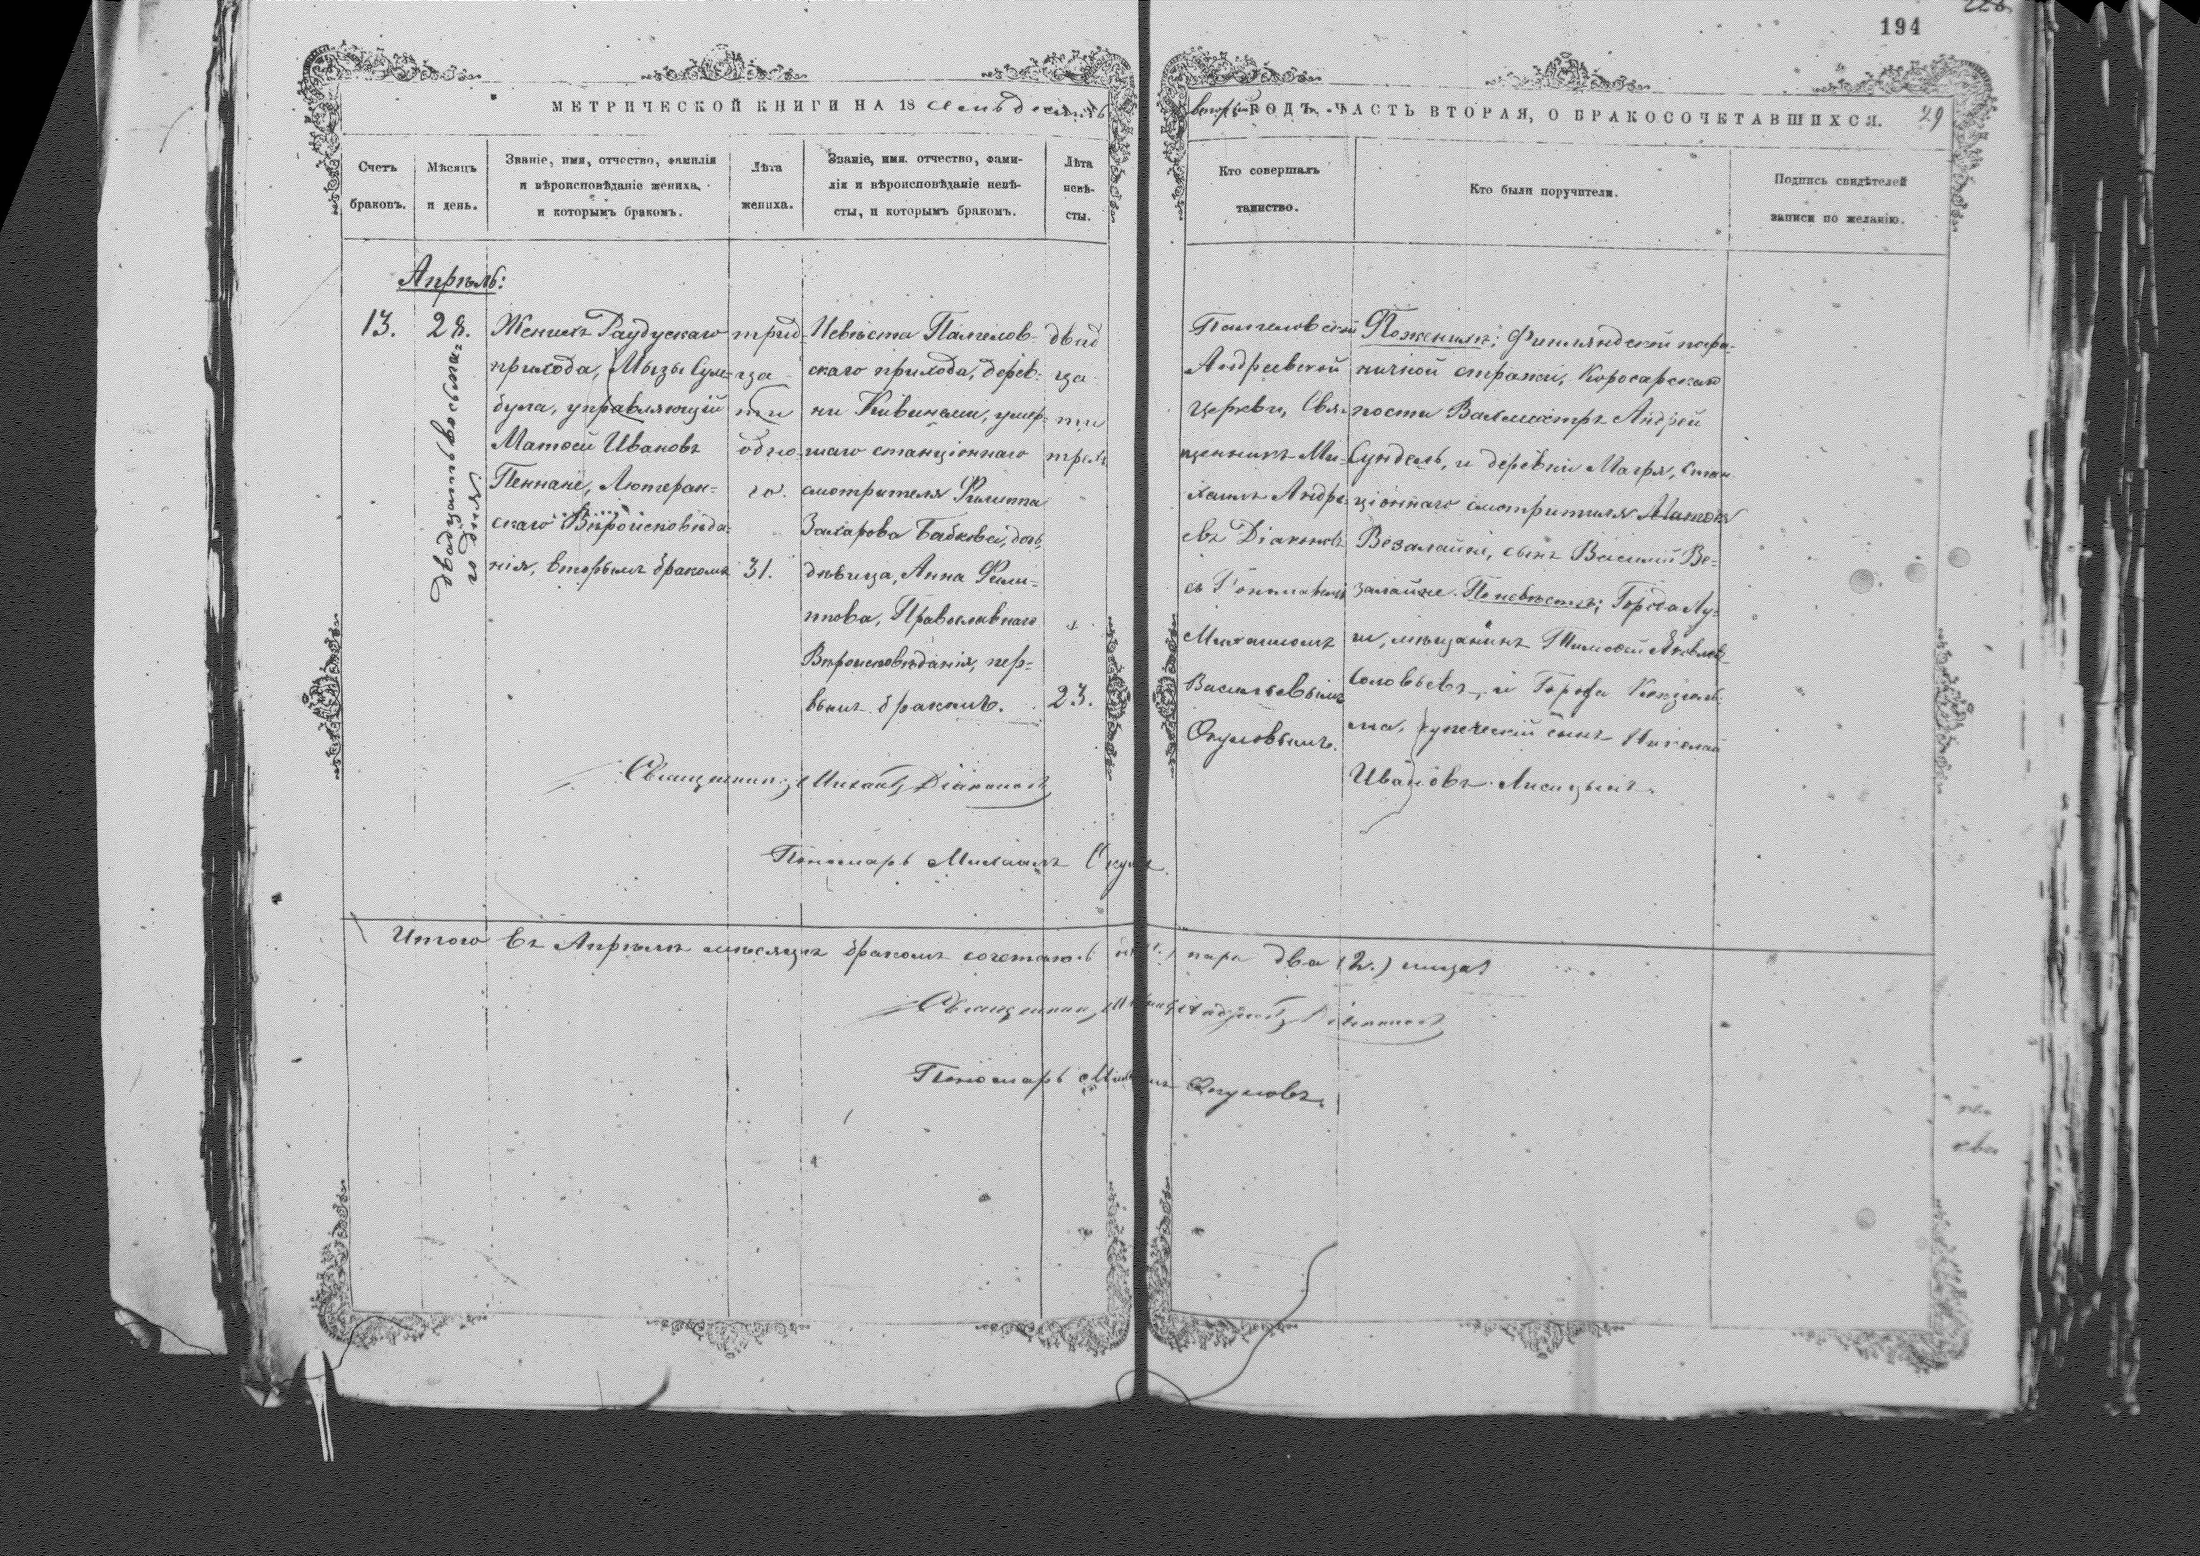 194
МЕТРИЧЕСКОЙ КНИГИ НА 18 семьдесятъ
второй ГОДЪ, ЧАСТЬ ВТОРАЯ, О БРАКОСОЧЕТАВШИХСЯ.
29
Счетъ
браковъ.
Мѣсяцъ
и день.
Званіе, имя, отчество, фамилія
и вѣроисповѣданіе жениха,
и которымъ бракомъ.
Лѣта
жениха.
Званіе, имя, отчество, фами-
лія и вѣроисповѣданіе невѣ-
сты, и которымъ бракомъ.
Лѣта
невѣ-
сты.
Кто совершалъ
таинство.
Кто были поручители.
Подпись свидѣтелей
записи по желанію.
Апрѣль:
13.
28.
двадцать восьма-
го дня
Женихъ Раудускаго
прихода, Мызы Сум-
була, управляющій
Матѳей Ивановъ
Пеннане, Лютеран-
скаго Вѣроисповѣда-
нія, вторымъ бракомъ
трид-
ца-
ти
одно-
го.
31.
Невѣста Палгелов-
скаго прихода, дерев-
ни Кивиньеми, умер-
шаго станціоннаго
смотрителя Филиппа
Захарова Бабкова, дочь,
дѣвица, Анна Фили-
пова, Православнаго
Вѣроисповѣданія, пер-
вымъ бракомъ.
двад
ца-
ти
трехъ
23.
Палгеловской
Андреевской
церкви, Свя-
щенникъ Ми-
хаилъ Андре-
евъ Діаконовъ
съ Пономаремъ
Михаиломъ
Васильевымъ
Окуловымъ.
По женихѣ: Финляндской погра-
ничной стражи, Коросарскаго
поста Вахмистръ Андрей
Сундель, и деревни Магря, стан
ціоннаго смотрителя Матѳея
Везалайне, сынъ Василій Ве-
залайне. По невѣстѣ: Города Лу-
ги, мѣщанинъ Тимоѳей Яковлев-
Соловьевъ, и Города Кексголь-
ма, купеческій сынъ Николай
Ивановъ Лисицынъ.
Священникъ Михаилъ Діаконовъ
Пономарь Михаилъ Окулов
Итого въ Апрѣлѣ мѣсяцѣ бракомъ сочеталось пара два (2.) лица
Священникъ Михаилъ Андреевъ Діаконовъ
Пономарь Михаилъ Окуловъ.